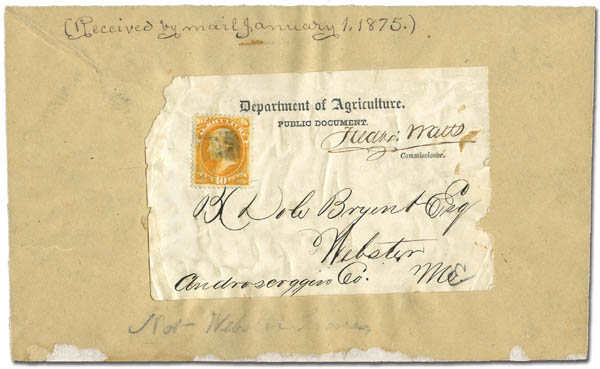 (Received by mail January 1, 1875.)
Department of Agriculture.
PUBLIC DOCUMENT.
Fredk. Watts
Commissioner.
AGRICULTURE
10
Dole Bryent Esq
Webster
Androscoggin Co. Me
Not